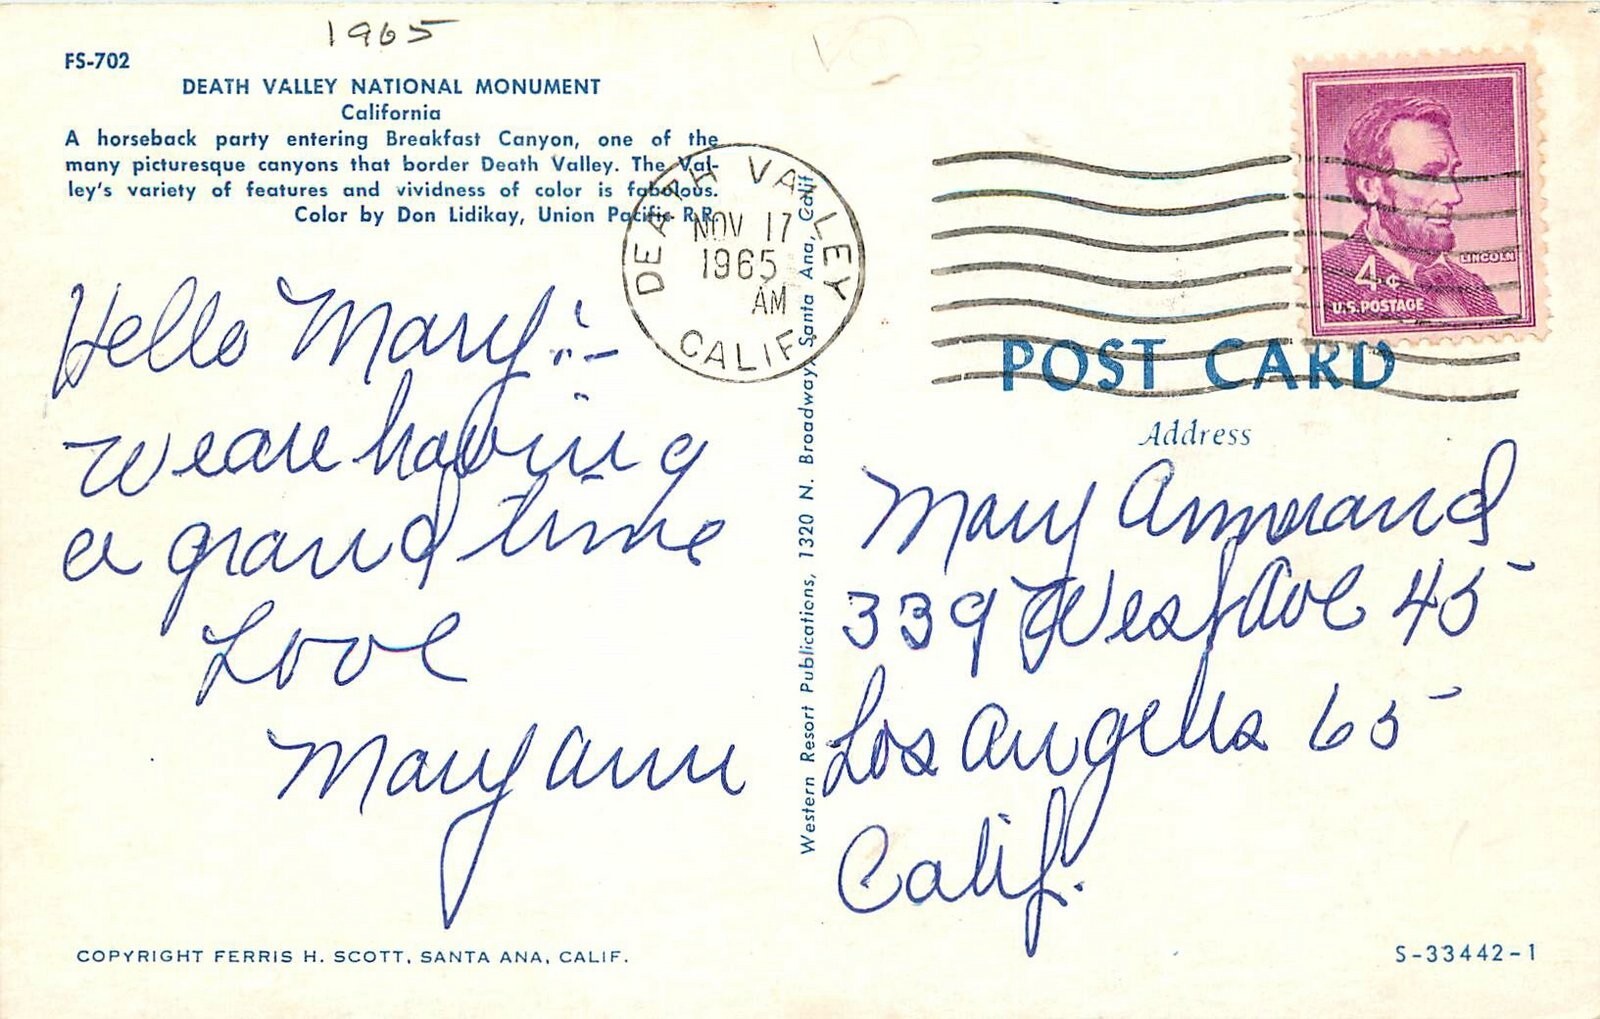 1965
FS-702
DEATH VALLEY NATIONAL MONUMENT
California
A horseback party entering Breakfast Canyon, one of the
many picturesque canyons that border Death Valley. The Val-
ley's variety of features and vividness of color is fabulous.
Color by Don Lidikay, Union Pacific R.R.
DEATH VALLEY
NOV 17
1965
AM
CALIF.
Hello Mary:-
We are having
a grand time
Love
Mary Ann
COPYRIGHT FERRIS H. SCOTT, SANTA ANA, CALIF.
Western Resort Publications, 1320 N. Broadway, Santa Ana, Calif
LINCOLN
4¢
U.S. POSTAGE
POST CARD
Address
Mary
339 West Ave 45
Los Angeles 65
Calif.
S-33442-1